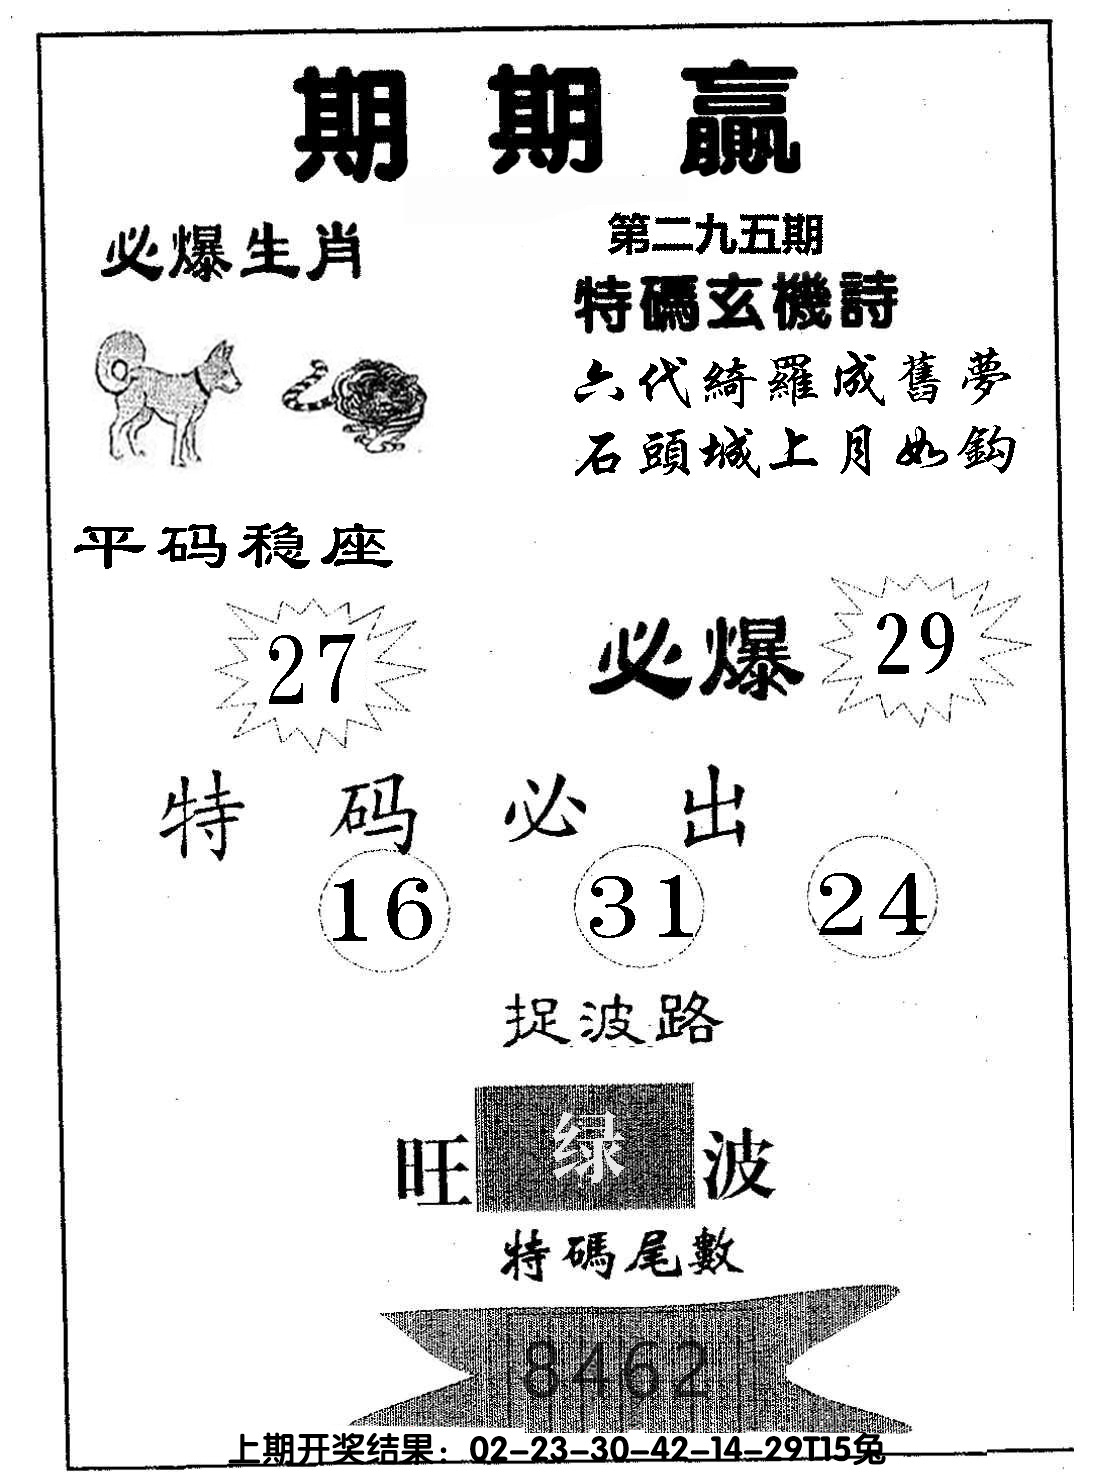 期期赢
第二九五期
必爆生肖
特碼玄機詩
六代綺羅成舊夢
石頭城上月如鈎
平码稳座
27
必爆 29
特码必出
16 31 24
捉波路
旺 绿 波
特碼尾數
8462
上期开奖结果：02-23-30-42-14-29T15兔